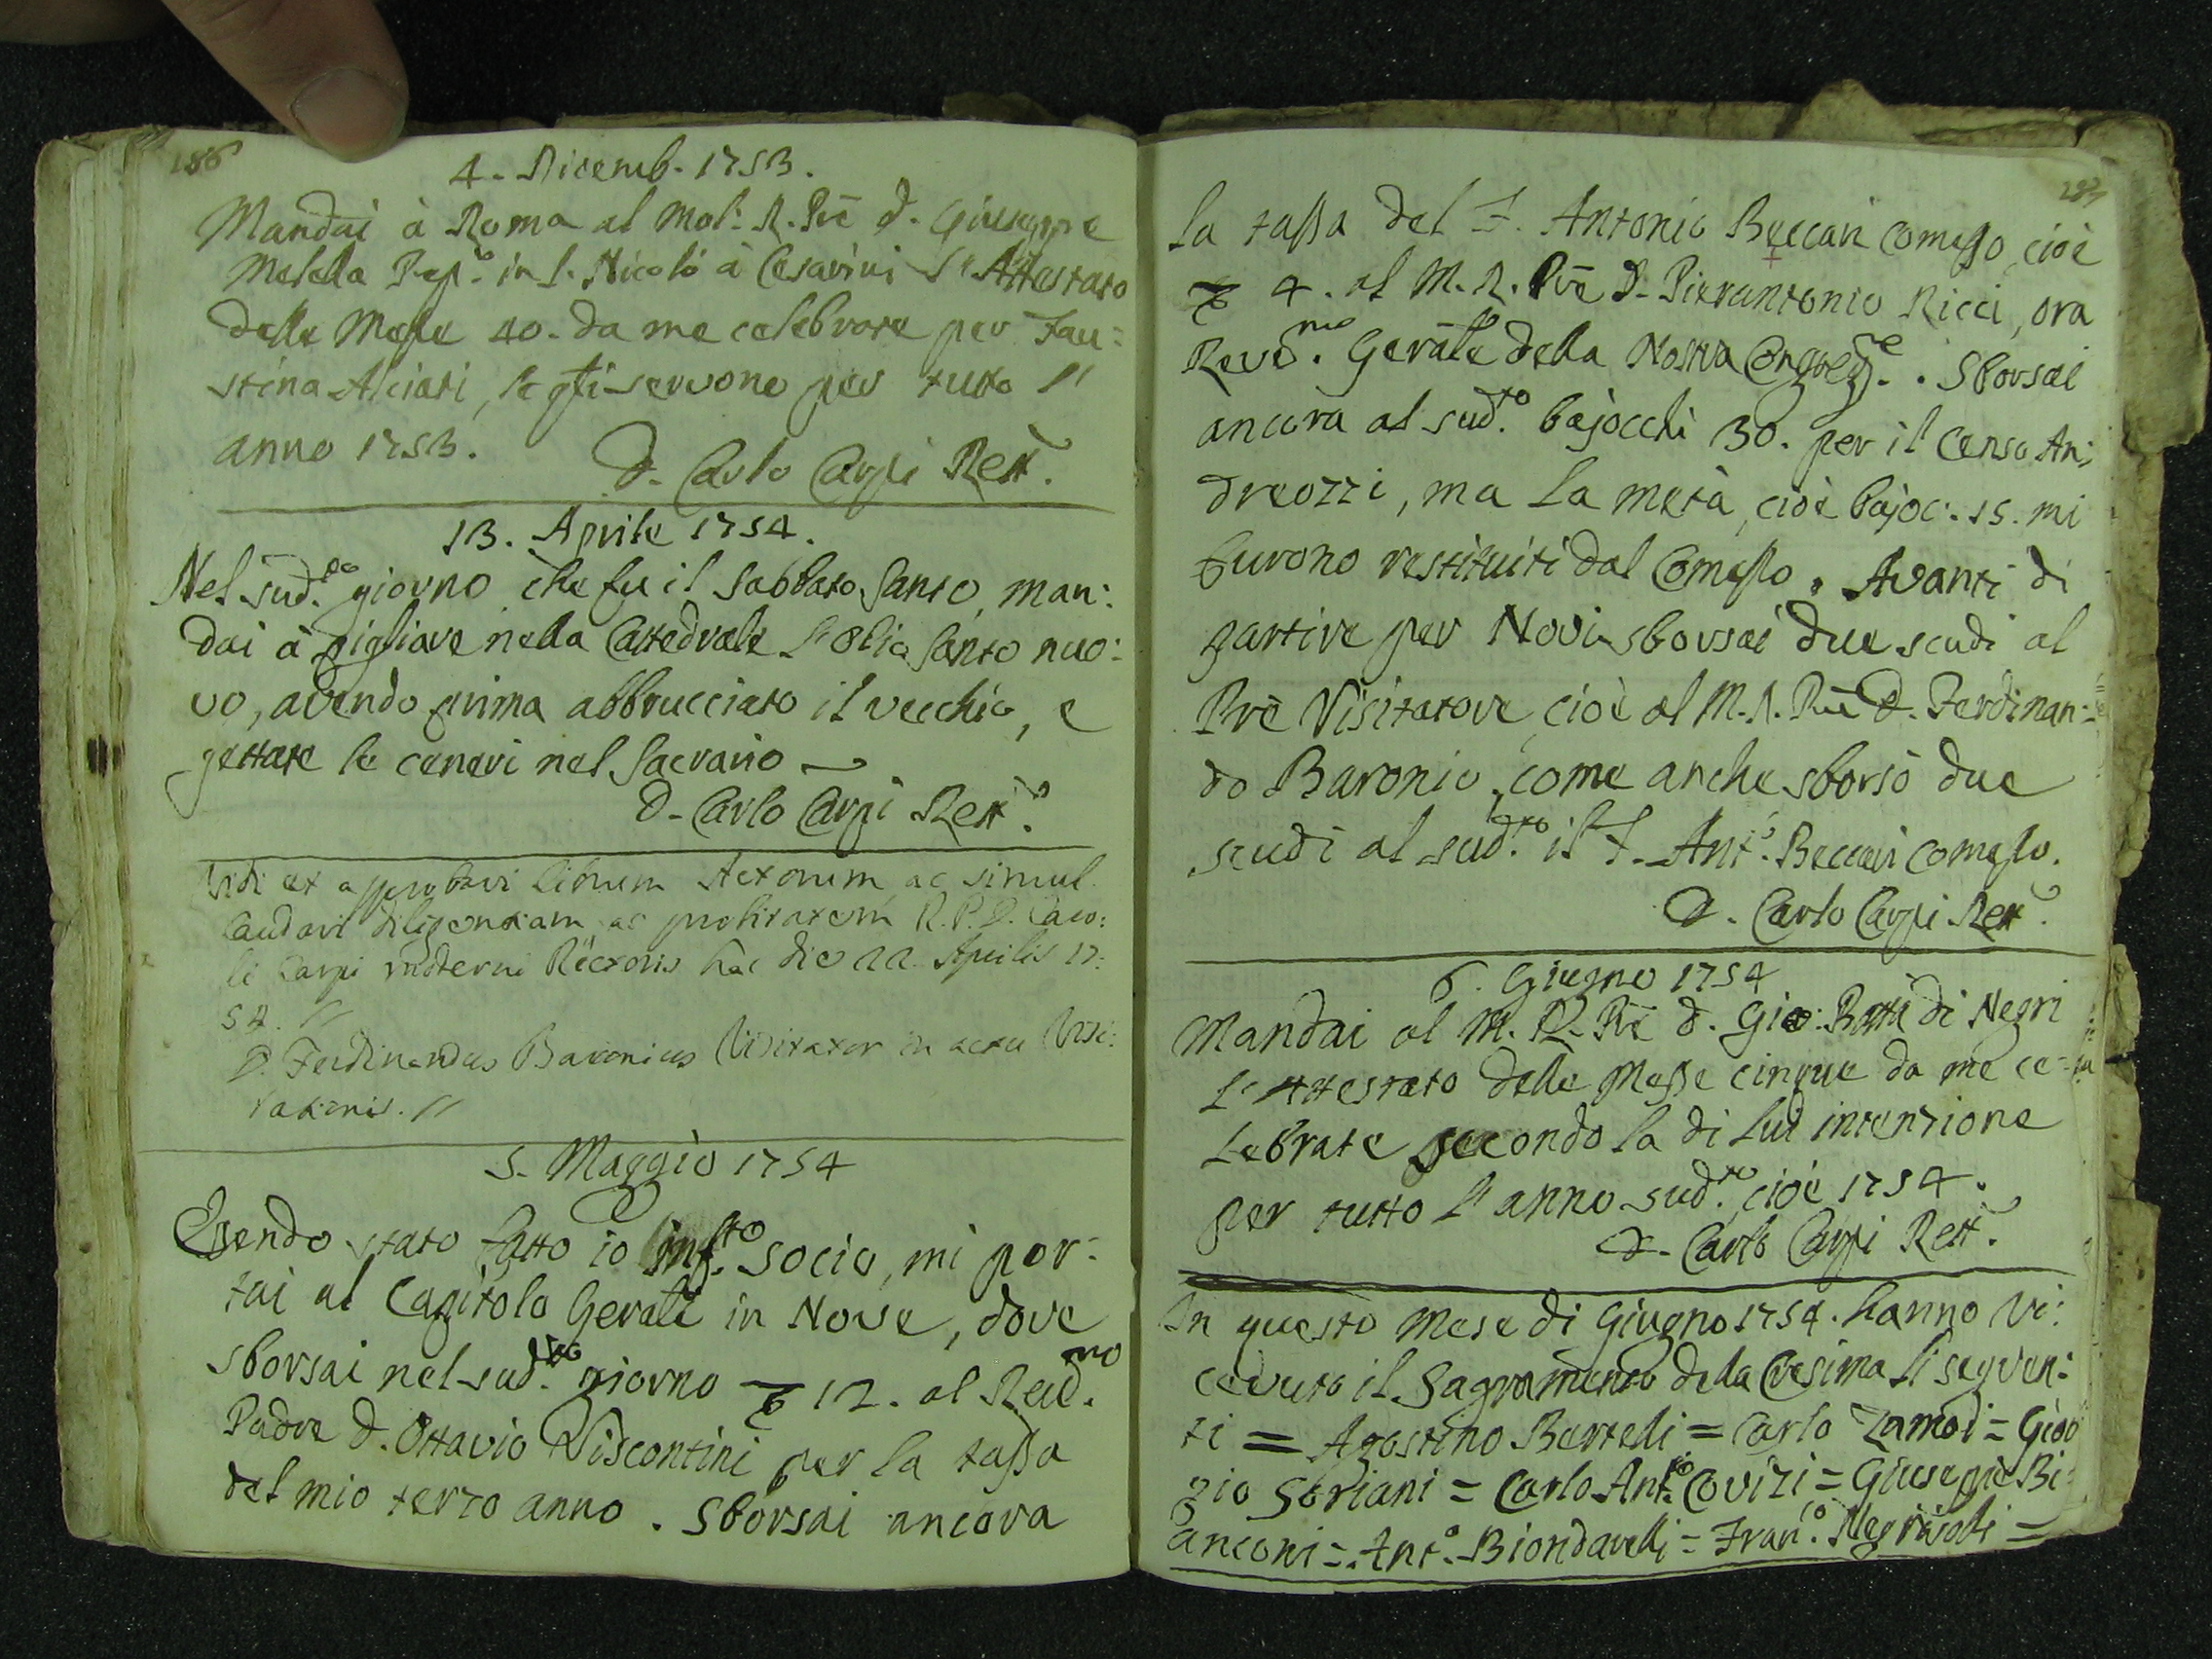 186
4. Dicemb. 1753.
Mandai à Roma al Mol: R. Prē D. Giuseppe
Melella Prep.o in S. Nicolò à Cesarini l'Attestato
delle Messe 40. da me celebrate per Fau=
stina Alciati, le qti servono per tutto l'
anno 1753.
D. Carlo Carpi Rett.e
13. Aprile 1754.
Nel sud.to giorno che fu il Sabbato Santo, man:
dai à pigliare nella Cattedrale l'olio Santo nuo:
vo, avendo prima abbrucciato il vecchio, e
gettate le ceneri nel Sacrario
D. Carlo Carpi Rett.e
Vidi et approbavi librum Actorum ac simul
laudavi diligentiam, ac probitatem R. P. D. Caro:
li Carpi moderni Rectoris hac die 22. Aprilis 17:
54. //
D. Ferdinandus Baronius Visitator in actu Visi:
tationis. //
5. Maggio 1754
Essendo stato fatto io inf.to Socio, mi por:
tai al Capitolo Gerāle in Nove, dove
sborsai nel sud.to giorno 12. al Revd.mo
Padre D. Ottavio Viscontini per la tassa
del mio terzo anno. Sborsai ancora
187
la tassa del F. Antonio Beccari Comesso, cioè
4. al M. R. Prē D. Pierantonio Ricci, ora
Revd.mo Gerāle della Nostra Congreg.ne. Sborsai
ancora al sud.to bajocchi 30. per il Censo An:
dreozzi, ma la metà, cioè bajoc: 15. mi
furono restituiti dal Comesso. Avanti di
partire per Novi sborsai due scudi al
Prē Visitatore, cioè al M. R. Prē D. Ferdinan=
do Baronio, come anche sborsò due
scudi al sud.to il F. Ant.o Beccari Comesso.
D. Carlo Carpi Rett.e
6. Giugno 1754
Mandai al M. R. Prē D. Gio: Batta di Negri
l'Attestato delle Messe cinque da me ce=
lebrate secondo la di lui intenzione
per tutto l'anno sud.to, cioè 1754.
D. Carlo Carpi Rett.e
In questo Mese di Giugno 1754. hanno ri:
cevuto il Sagramento della Cresima li seguen:
ti = Agostino Bertelli = Carlo Zamodi = Gior
gio Sbriani = Carlo Ant.o Covizi = Giuseppe Bi=
anconi = Ant.o Biondarelli = Fran.o Negrisoli =